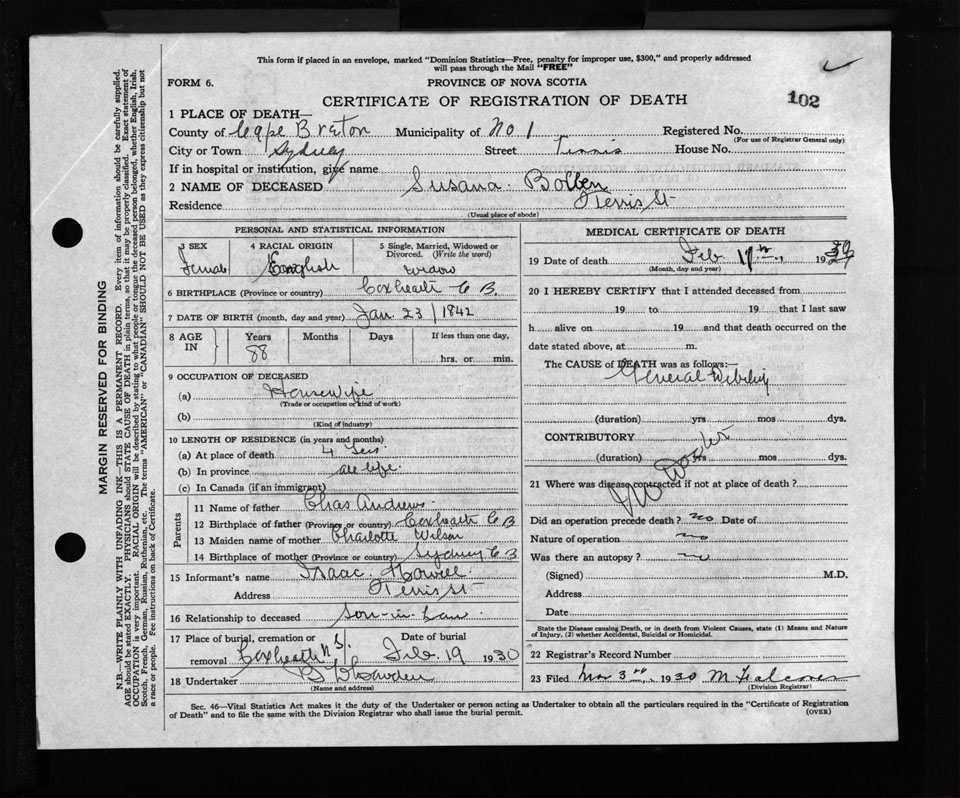 This form if placed in an envelope, marked "Dominion Statistics—Free, penalty for improper use, $300," and properly addressed
will pass through the Mail "FREE"
FORM 6.
PROVINCE OF NOVA SCOTIA
CERTIFICATE OF REGISTRATION OF DEATH
102
1 PLACE OF DEATH—
County of Cape Breton Municipality of No 1 Registered No.
(For use of Registrar General only)
City or Town Sydney Street House No.
If in hospital or institution, give name
2 NAME OF DECEASED Susana Bolben
Residence St
(Usual place of abode)
PERSONAL AND STATISTICAL INFORMATION
3 SEX Female
4 RACIAL ORIGIN English
5 Single, Married, Widowed or Divorced. (Write the word) widow
6 BIRTHPLACE (Province or country) Coxheath C B.
7 DATE OF BIRTH (month, day and year) Jan. 23 / 1842
8 AGE IN Years 88 Months Days If less than one day, hrs. or min.
9 OCCUPATION OF DECEASED
(a) Housewife
(Trade or occupation or kind of work)
(b)
(Kind of industry)
10 LENGTH OF RESIDENCE (in years and months)
(a) At place of death 4
(b) In province all life.
(c) In Canada (if an immigrant)
Parents
11 Name of father Chas Andrews
12 Birthplace of father (Province or country) Coxheath C B
13 Maiden name of mother Charlotte Wilson
14 Birthplace of mother (Province or country) Sydney C B
15 Informant's name Isaac
Address St
16 Relationship to deceased Son-in-Law
17 Place of burial, cremation or removal Coxheath N S.
Date of burial Feb. 19 1930
18 Undertaker
(Name and address)
MEDICAL CERTIFICATE OF DEATH
19 Date of death Feb 17th 19
(Month, day and year)
20 I HEREBY CERTIFY that I attended deceased from
19 to 19 that I last saw
h alive on 19 and that death occurred on the
date stated above, at m.
The CAUSE of DEATH was as follows:—
General Debility
(duration) yrs mos dys.
CONTRIBUTORY
(duration) yrs mos dys.
21 Where was disease contracted if not at place of death?
Did an operation precede death? no Date of
Nature of operation no
Was there an autopsy? no
(Signed) M.D.
Address
Date
State the Disease causing Death, or in death from Violent Causes, state (1) Means and Nature
of Injury, (2) whether Accidental, Suicidal or Homicidal.
22 Registrar's Record Number
23 Filed Mar 3rd, 1930
(Division Registrar)
Sec. 46—Vital Statistics Act makes it the duty of the Undertaker or person acting as Undertaker to obtain all the particulars required in the "Certificate of Registration
of Death" and to file the same with the Division Registrar who shall issue the burial permit.
(OVER)
MARGIN RESERVED FOR BINDING
N.B.—WRITE PLAINLY WITH UNFADING INK—THIS IS A PERMANENT RECORD. Every item of information should be carefully supplied.
AGE should be stated EXACTLY. PHYSICIANS should STATE CAUSE OF DEATH in plain terms, so that it may be properly classified. Exact statement of
OCCUPATION is very important. RACIAL ORIGIN will be described by stating to what people or tongue the deceased person belonged, whether English, Irish,
Scotch, French, German, Russian, Ruthenian, etc. The terms "AMERICAN" or "CANADIAN" SHOULD NOT BE USED as they express citizenship but not
a race or people. See instructions on back of Certificate.